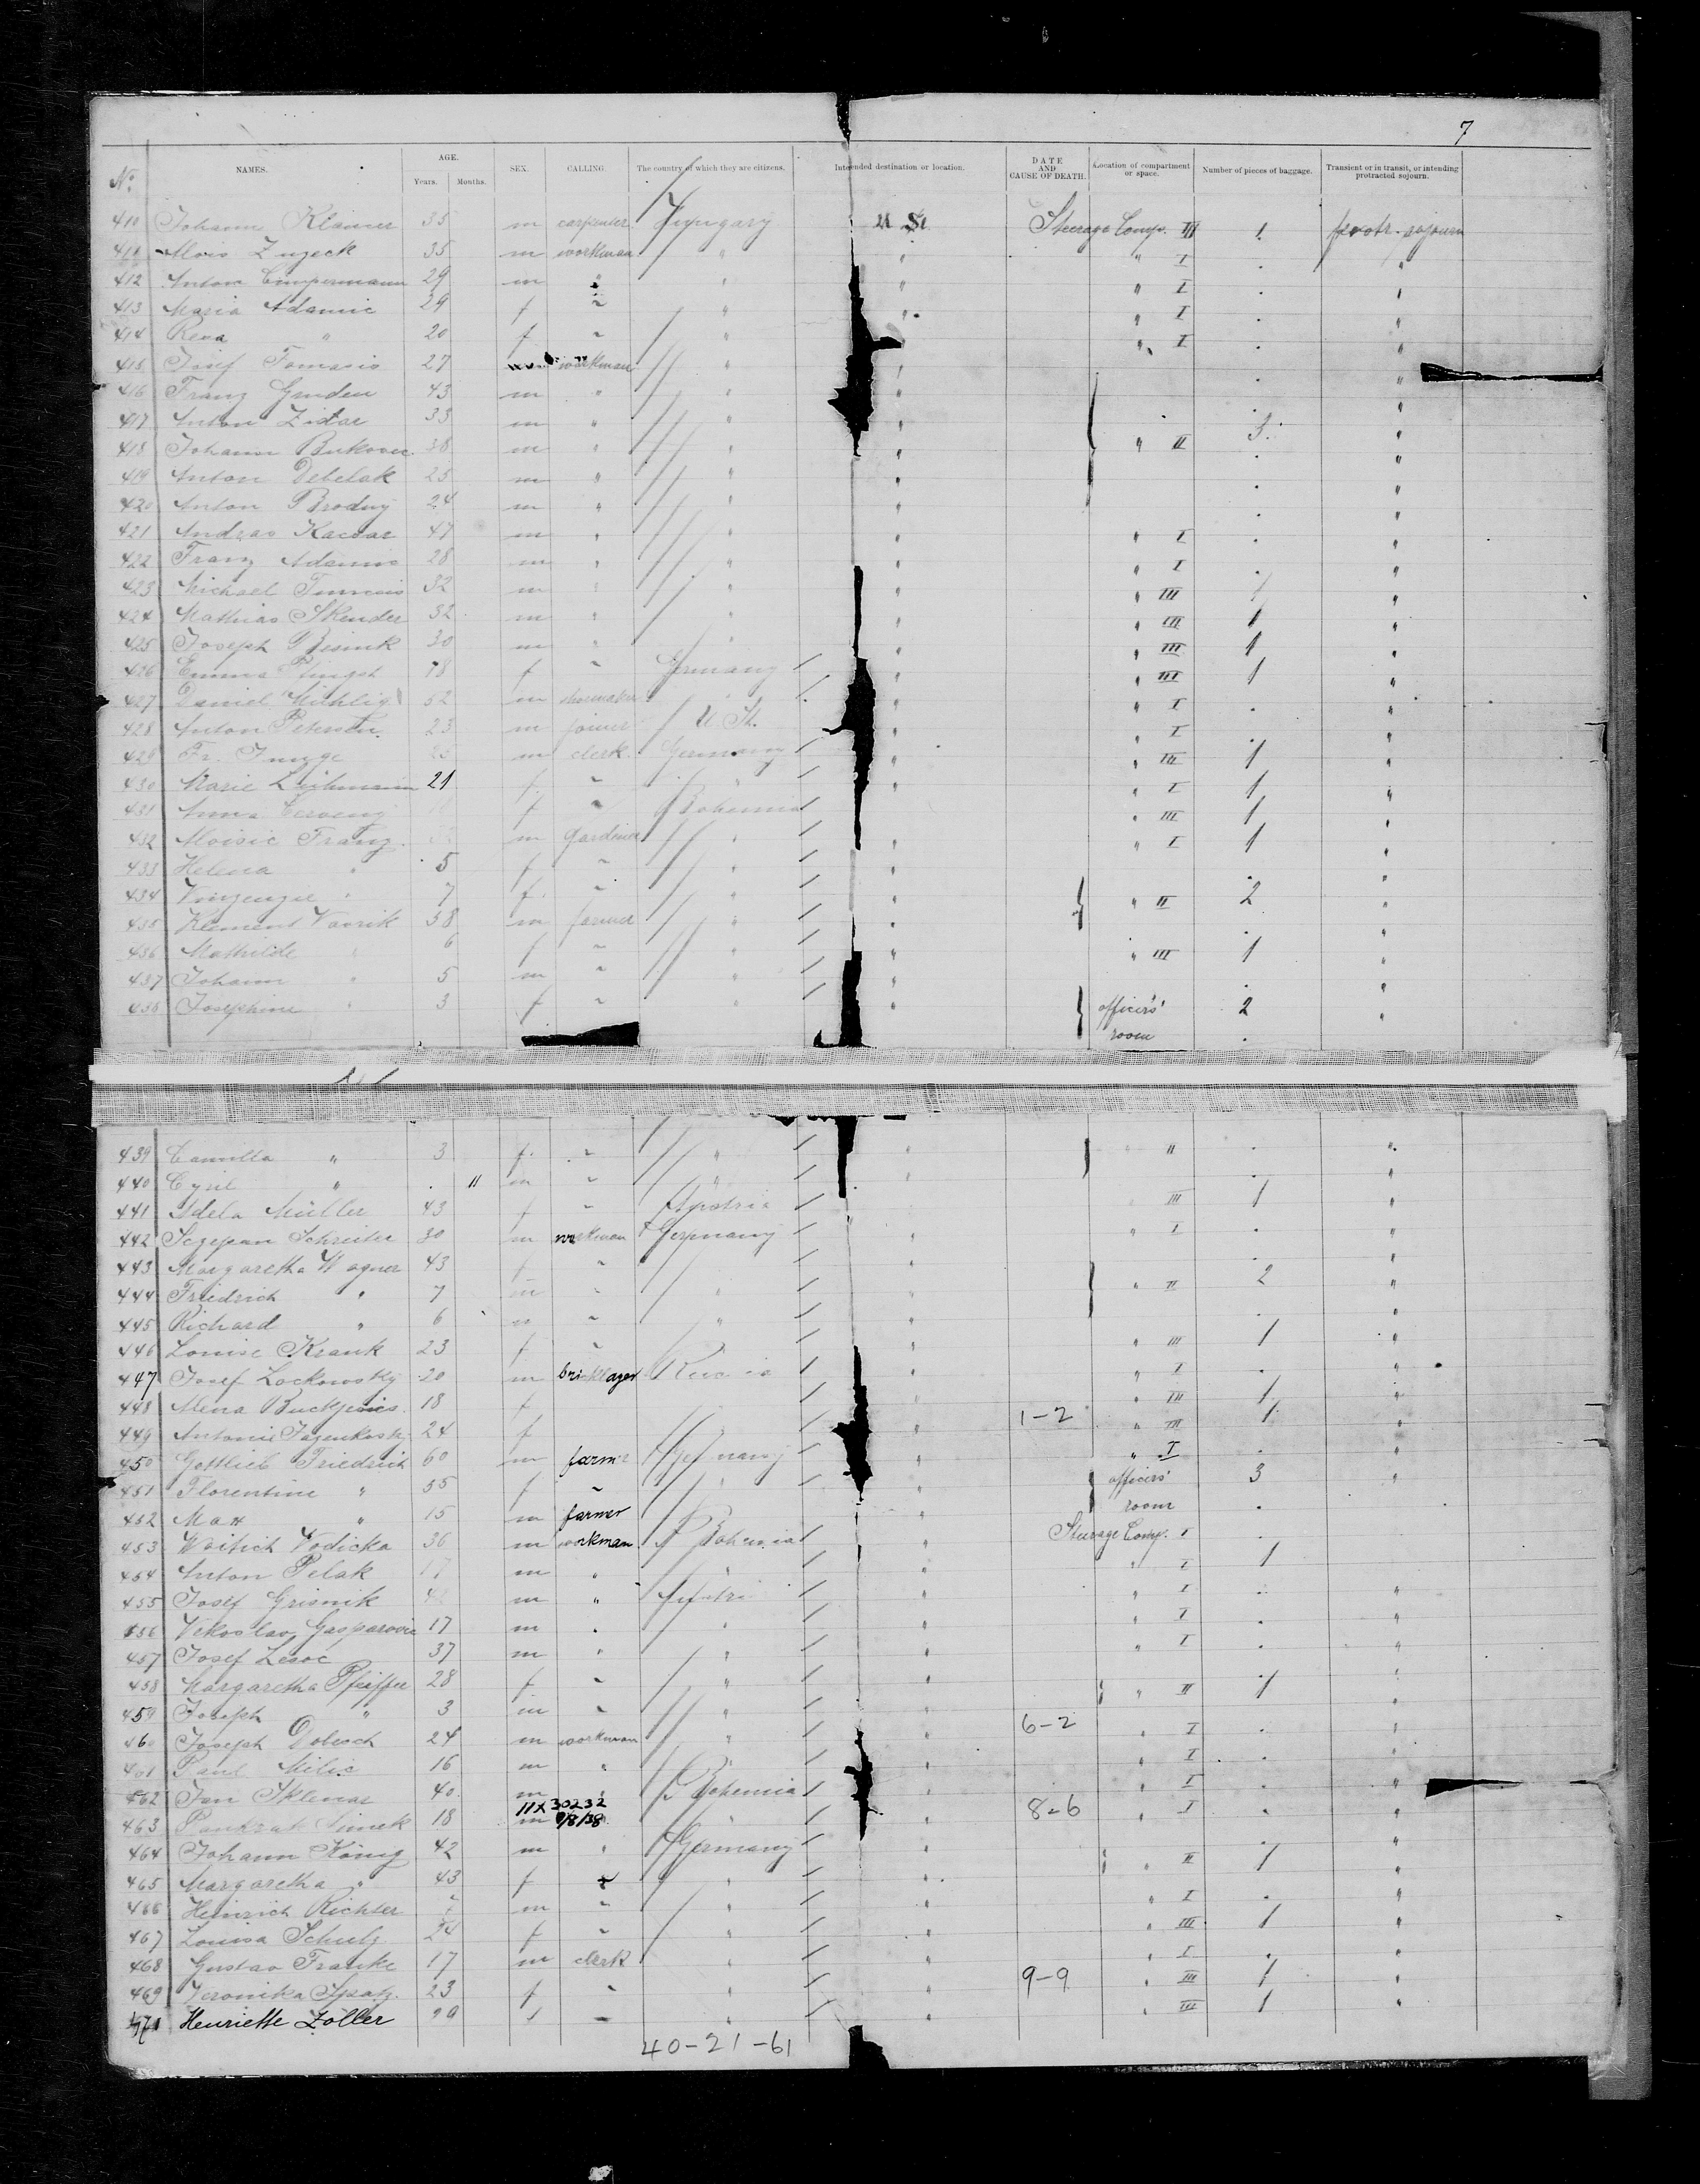 7
No. NAMES. AGE. Years. Months. SEX. CALLING. The country of which they are citizens. Intended destination or location. DATE AND CAUSE OF DEATH. Location of compartment or space. Number of pieces of baggage. Transient or in transit, or intending protracted sojourn.
410 Johann Klamer 35 m carpenter Hungary U. St. Steerage Comp. III 1 protr. sojourn
411 Alois 35 m workman " " " I . "
412 Anton Cimpermann 29 m " " " " I . "
413 Maria Adamic 29 f ~ " " " I . "
414 " 20 f ~ " " " I . "
415 Josef Tomasic 27 workman " " . "
416 Franz Gruden 43 m " " " . "
417 Anton Zidar 33 m " " " 3. "
418 Johann Bukovec 38 m " " " " II . "
419 Anton Debelak 25 m " " " . "
420 Anton 24 m " " " . "
421 Andras 47 m " " " " I . "
422 Franz Adamic 28 m " " " " I . "
423 Michael 32 m " " " " III 1 "
424 Mathias Skender 32 m " " " " III 1 "
425 Joseph 30 m " " " " III 1 "
426 Emma Pfingst 18 f ~ Germany " " III 1 "
427 Daniel Mühlig 52 m shoemaker " " " I . "
428 Anton Petersen 23 m joiner U. St. " " I . "
429 Fr. Junge m clerk Germany " " III 1 "
430 Marie 21 f ~ " " " I 1 "
431 Anna Cerveny f ~ Bohemia " " III 1 "
432 Franz m gardener " " " I 1 "
433 Helena " 5 f ~ " " . "
434 " 7 f ~ " " " II 2 "
435 Klement Vavrik 38 m farmer " " "
436 Mathilde " 6 f ~ " " " III 1 "
437 Johann " 5 m ~ " " . "
438 Josephine " 3 f ~ " " officers' room 2 "
439 Camilla " 3 f. ~ " " " . "
440 Cyril " . 11 m ~ " " . "
441 Adela Müller 43 f ~ Austria III 1 "
442 Sczepan Schreiter 30 m workman Germany " " I . "
443 Margaretha Wagner 43 f ~ " . "
444 Friedrich " 7 m ~ " " " II 2 "
445 Richard " 6 m ~ " " . "
446 Louise Krank 23 f ~ " " III 1 "
447 Josef Lockowsky 20 m bricklayer " " I . "
448 18 f " " III 1 "
449 Antonie 24 f " 1-2 " III 1 "
450 Gottlieb Friedrich 60 m farmer Germany " " I . "
451 Florentine " 55 f ~ " " officers' room 3 "
452 Max " 15 m farmer " .
453 Woitich Vodicka 36 m workman Bohemia " Steerage Comp. I .
454 Anton Pelak 17 m " " " " I 1
455 Josef Grisnik m " Austria " " I . "
456 Vekoslav Gasparovic 17 m " " " " I . "
457 Josef Zesoc 37 m " " " " I . "
458 Margaretha Pfeiffer 28 f ~ " " " II 1 "
459 Joseph " 3 m ~ " " "
460 Joseph Dolesch 24 m workman " " 6-2 " I . "
461 Paul Milic 16 m " " " " I . "
462 Jan Sklenar 40 m " Bohemia " " I . "
11X30232 9/8/38
463 Pankrak Simek 18 m " " " 8-6 " I . "
464 Johann König 42 m " Germany " " II 1 "
465 Margaretha " 43 f ~ " " "
466 Heinrich Richter m ~ " " " I . "
467 Louisa Schulz 24 f ~ " " " III 1 "
468 Gustav Franke 17 m clerk " " " I . "
469 Veronika 23 f ~ " " 9-9 " III 1 "
470 Henriette Zoller f ~ " " " III 1 "
40-21-61